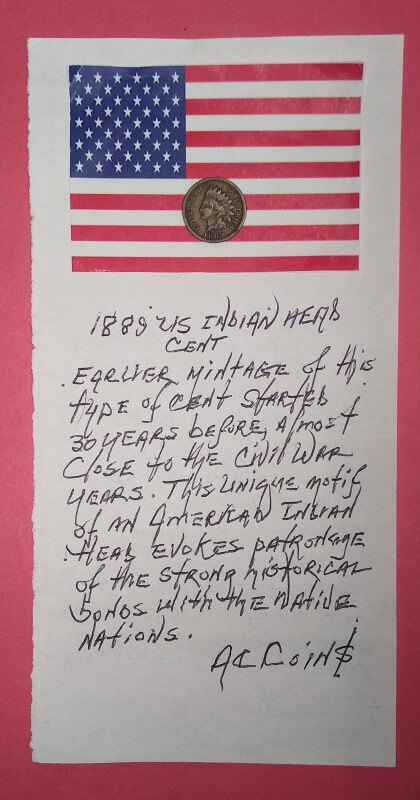 1889 US INDIAN HEAD
CENT
EARLIER MINTAGE of this
type of CENT STARTED
30 YEARS before, Almost
Close to the Civil WAR
YEARS. This Unique motif
of AN AMERICAN INDIAN
HEAD EVOKES PATRONAGE
of the STRONG historical
bonds with the NATIVE
NATIONS.
AC COIN$